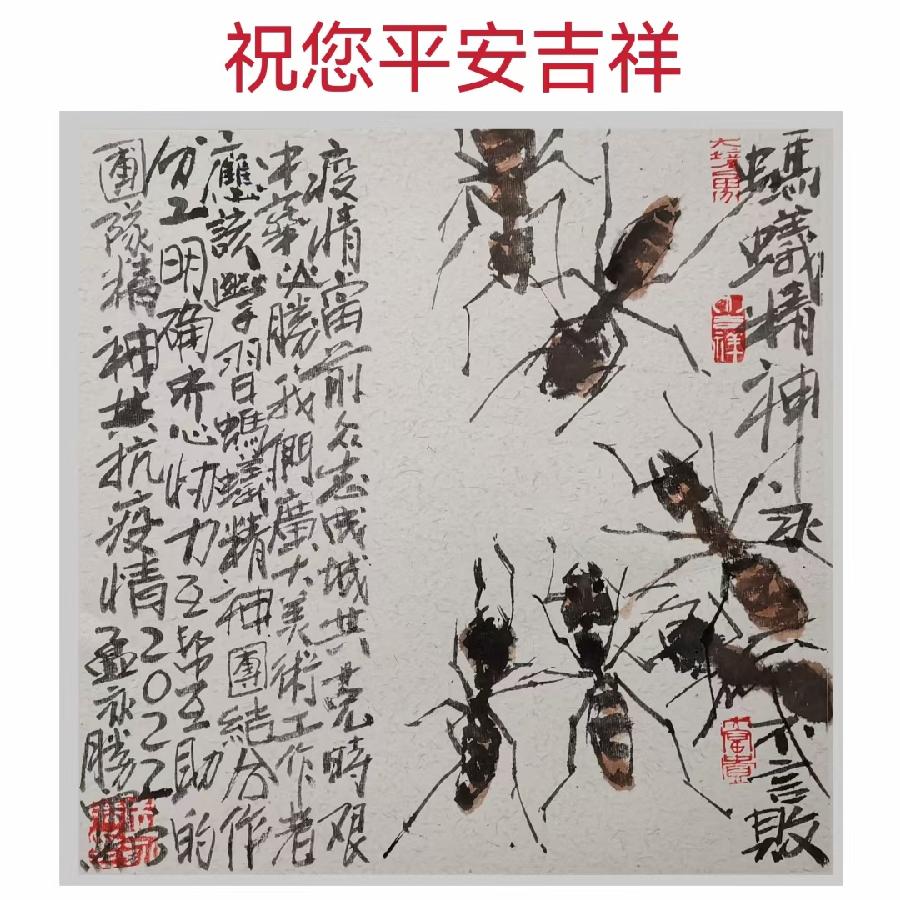 祝您平安吉祥
螞蟻精神永不言敗
吉祥
疫情當前众志成城共克時艰
中華必勝我們廣大美術工作者
應該學習螞蟻精神團結合作
分工明确齐心协力互幚互助的
團隊精神共抗疫情2022
孟永勝